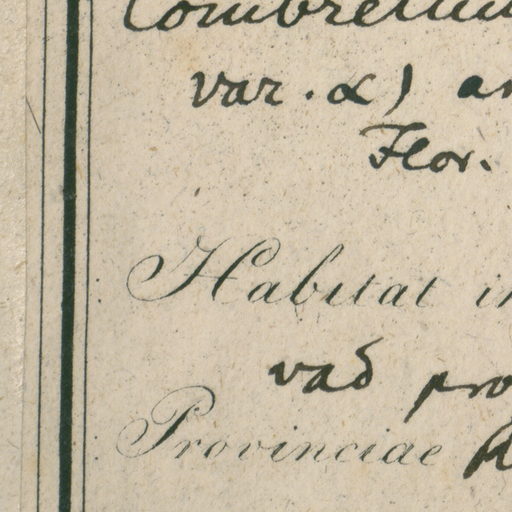 Combretum
var. α) an
Flor.
Habitat in
vad pro
Provinciae